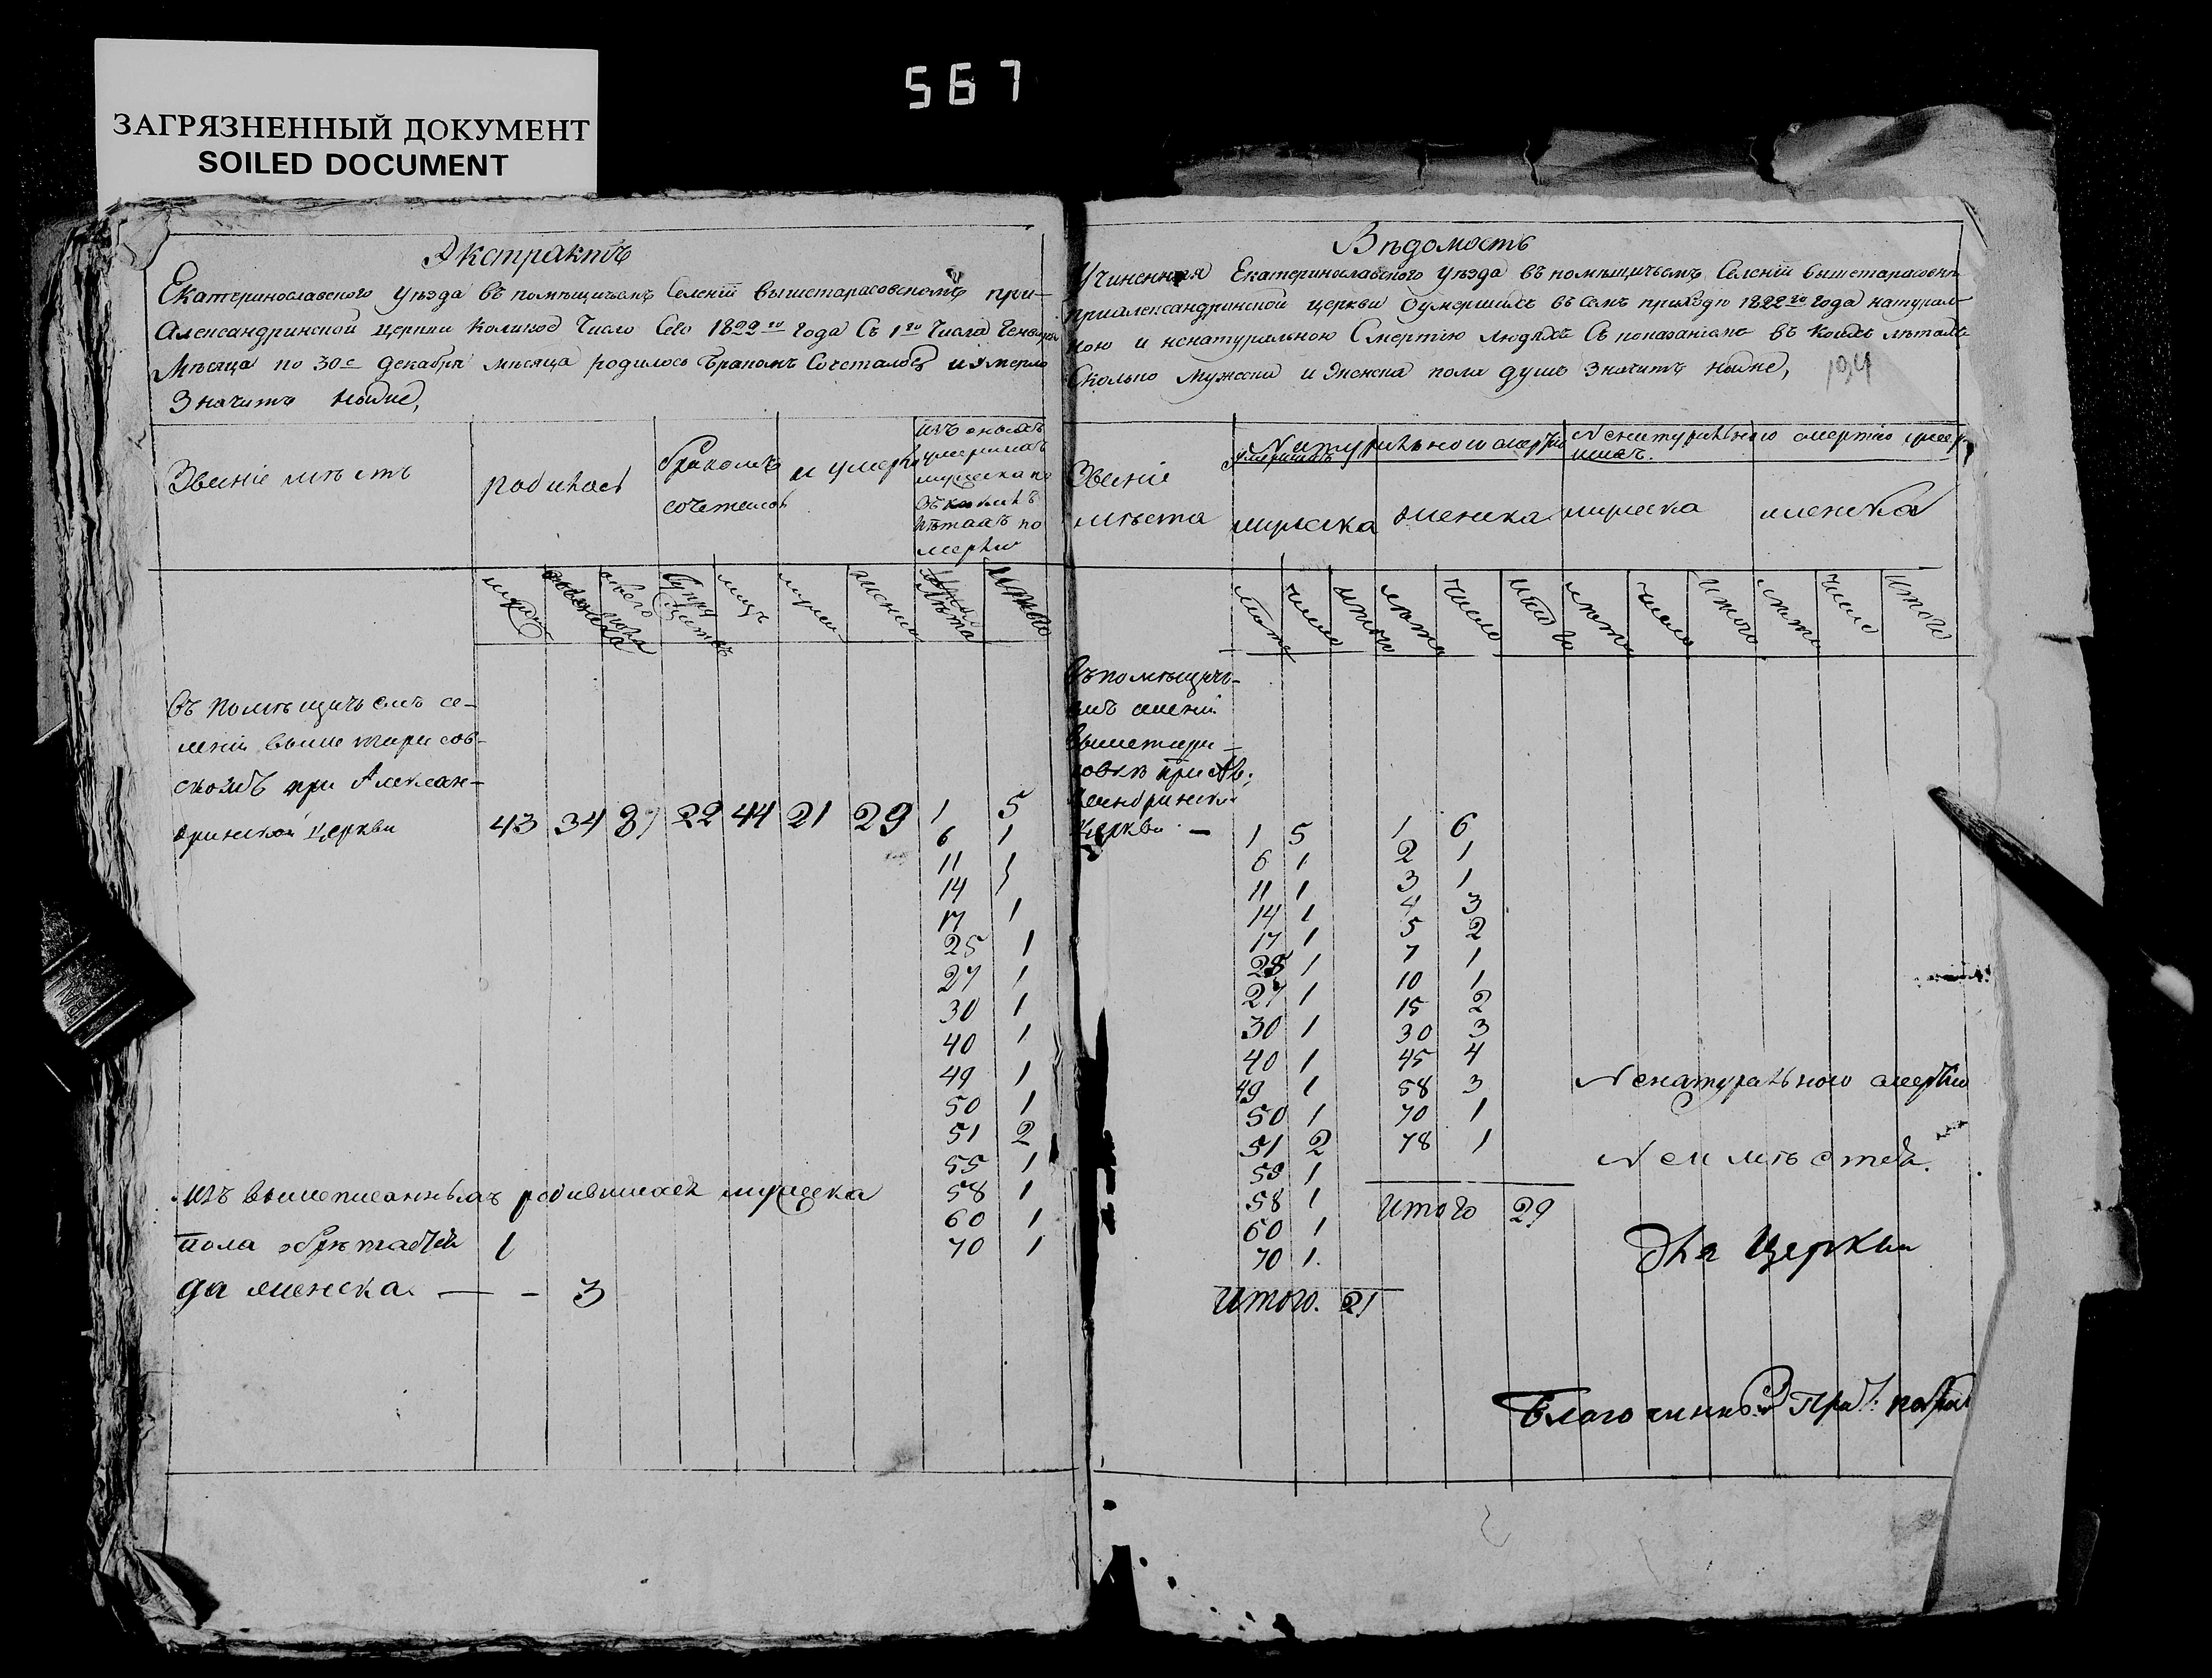 567
ЗАГРЯЗНЕННЫЙ ДОКУМЕНТ
SOILED DOCUMENT
Экстрактъ
Екатеринославского уѣзда въ помѣщичьемъ селеніи вышетарасовскомъ при
Александринской церкви коликое число сего 1822го года съ 1го числа Генваря
мѣсяца по 30е декабря мѣсяца родилось бракомъ сочеталось и умерло
значитъ ниже,
Званіе мѣстъ
родилось
бракомъ
сочеталось
и умерло
изъ оныхъ
умершихъ
мужеска по
въ коихъ
лѣтахъ по
мерло
мужеска
женска
обоего пола
супружествъ
лицъ
мужеска
женска
лѣта
число
въ помѣщичьемъ се-
леніи вышетарасов-
скомъ при Алексан-
дринской церкви 43 34 87 22 44 21 29 1 5
6 1
11 1
14 1
17 1
25 1
27 1
30 1
40 1
49 1
50 1
51 2
55 1
58 1
60 1
70 1
изъ вышеписанныхъ родившихся мужеска
пола 1
да женска — - 3
Вѣдомость
Учиненная Екатеринославского уѣзда въ помѣщичьемъ селеніи вышетарасовкѣ
приалександринской церкви о умершихъ въ семъ приходѣ 1822го года натураль-
ною и ненатуральною смертію людяхъ съ показаніемъ въ коихъ лѣтахъ
сколько мужеска и женска пола душъ значитъ ниже,
194
Званіе
мѣста
Натуральною смертію
умершихъ
Ненатуральною смертію умер-
шихъ.
мужеска женска мужеска женска
лѣта число итого лѣта число итого лѣта число итого лѣта число итого
въ помѣщичь-
емъ селеніи
вышетара-
совкѣ при Але-
ксандринской
церкви — 1 5 1 6
6 1 2 1
11 1 3 1
14 1 4 3
17 1 5 2
25 1 7 1
27 1 10 1
30 1 15 2
40 1 30 3
49 1 45 4
50 1 58 3
51 2 70 1
55 1 78 1
58 1 итого 29
60 1
70 1.
итого. 21
Ненатуральною смертію
Неимѣется.
Для Церкви
Благочинный